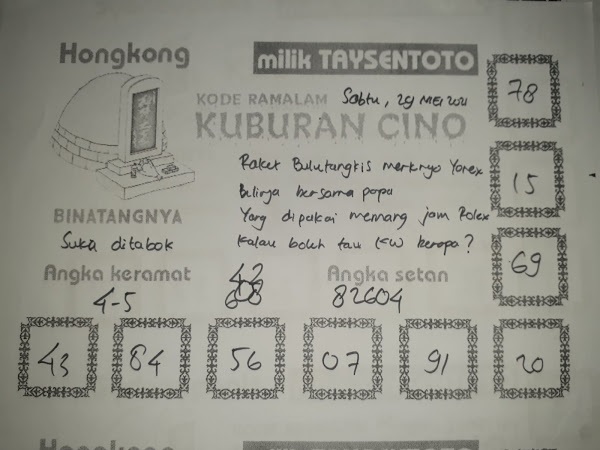 Hongkong
milik TAYSENTOTO
78
KODE RAMALAM Sabtu, 29 MEI 2021
KUBURAN CINO
Raket Bulutangkis merknyo Yonex
Bilinyo bersama papa
15
BINATANGNYA
Yang dipakai memang jam Rolex
Suka ditabok
Kalau boleh tau KW berapa?
69
Angka keramat
42
Angka setan
4-5
608
82604
43 84 56 07 91 20
Hongkong